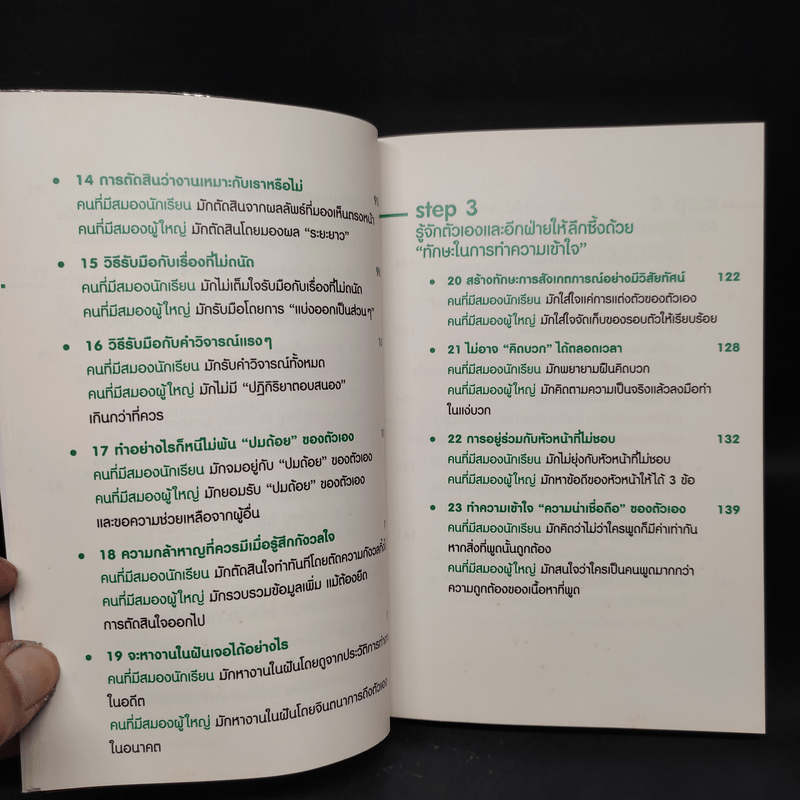 • 14 การตัดสินว่างานเหมาะกับเราหรือไม่
คนที่มีสมองนักเรียน มักตัดสินจากผลลัพธ์ที่มองเห็นตรงหน้า
คนที่มีสมองผู้ใหญ่ มักตัดสินโดยมองผล “ระยะยาว”
• 15 วิธีรับมือกับเรื่องที่ไม่ถนัด
คนที่มีสมองนักเรียน มักไม่เต็มใจรับมือกับเรื่องที่ไม่ถนัด
คนที่มีสมองผู้ใหญ่ มักรับมือโดยการ “แบ่งออกเป็นส่วนๆ”
• 16 วิธีรับมือกับคำวิจารณ์แรงๆ
คนที่มีสมองนักเรียน มักรับคำวิจารณ์ทั้งหมด
คนที่มีสมองผู้ใหญ่ มักไม่มี “ปฏิกิริยาตอบสนอง”
เกินกว่าที่ควร
• 17 ทำอย่างไรก็หนีไม่พ้น “ปมด้อย” ของตัวเอง
คนที่มีสมองนักเรียน มักจมอยู่กับ “ปมด้อย” ของตัวเอง
คนที่มีสมองผู้ใหญ่ มักยอมรับ “ปมด้อย” ของตัวเอง
และขอความช่วยเหลือจากผู้อื่น
• 18 ความกล้าหาญที่ควรมีเมื่อรู้สึกกังวลใจ
คนที่มีสมองนักเรียน มักตัดสินใจทำทันทีโดยตัดความกังวลทิ้งไป
คนที่มีสมองผู้ใหญ่ มักรวบรวมข้อมูลเพิ่ม แม้ต้องยืด
การตัดสินใจออกไป
• 19 จะหางานในฝันเจอได้อย่างไร
คนที่มีสมองนักเรียน มักหางานในฝันโดยดูจากประวัติการทำงาน
ในอดีต
คนที่มีสมองผู้ใหญ่ มักหางานในฝันโดยจินตนาการถึงตัวเอง
ในอนาคต
step 3
รู้จักตัวเองและอีกฝ่ายให้ลึกซึ้งด้วย
“ทักษะในการทำความเข้าใจ”
• 20 สร้างทักษะการสังเกตการณ์อย่างมีวิสัยทัศน์ 122
คนที่มีสมองนักเรียน มักใส่ใจแค่การแต่งตัวของตัวเอง
คนที่มีสมองผู้ใหญ่ มักใส่ใจจัดเก็บของรอบตัวให้เรียบร้อย
• 21 ไม่อาจ “คิดบวก” ได้ตลอดเวลา 128
คนที่มีสมองนักเรียน มักพยายามฝืนคิดบวก
คนที่มีสมองผู้ใหญ่ มักคิดตามความเป็นจริงแล้วลงมือทำ
ในแง่บวก
• 22 การอยู่ร่วมกับหัวหน้าที่ไม่ชอบ 132
คนที่มีสมองนักเรียน มักไม่ยุ่งกับหัวหน้าที่ไม่ชอบ
คนที่มีสมองผู้ใหญ่ มักหาข้อดีของหัวหน้าให้ได้ 3 ข้อ
• 23 ทำความเข้าใจ “ความน่าเชื่อถือ” ของตัวเอง 139
คนที่มีสมองนักเรียน มักคิดว่าไม่ว่าใครพูดก็มีค่าเท่ากัน
หากสิ่งที่พูดนั้นถูกต้อง
คนที่มีสมองผู้ใหญ่ มักสนใจว่าใครเป็นคนพูดมากกว่า
ความถูกต้องของเนื้อหาที่พูด